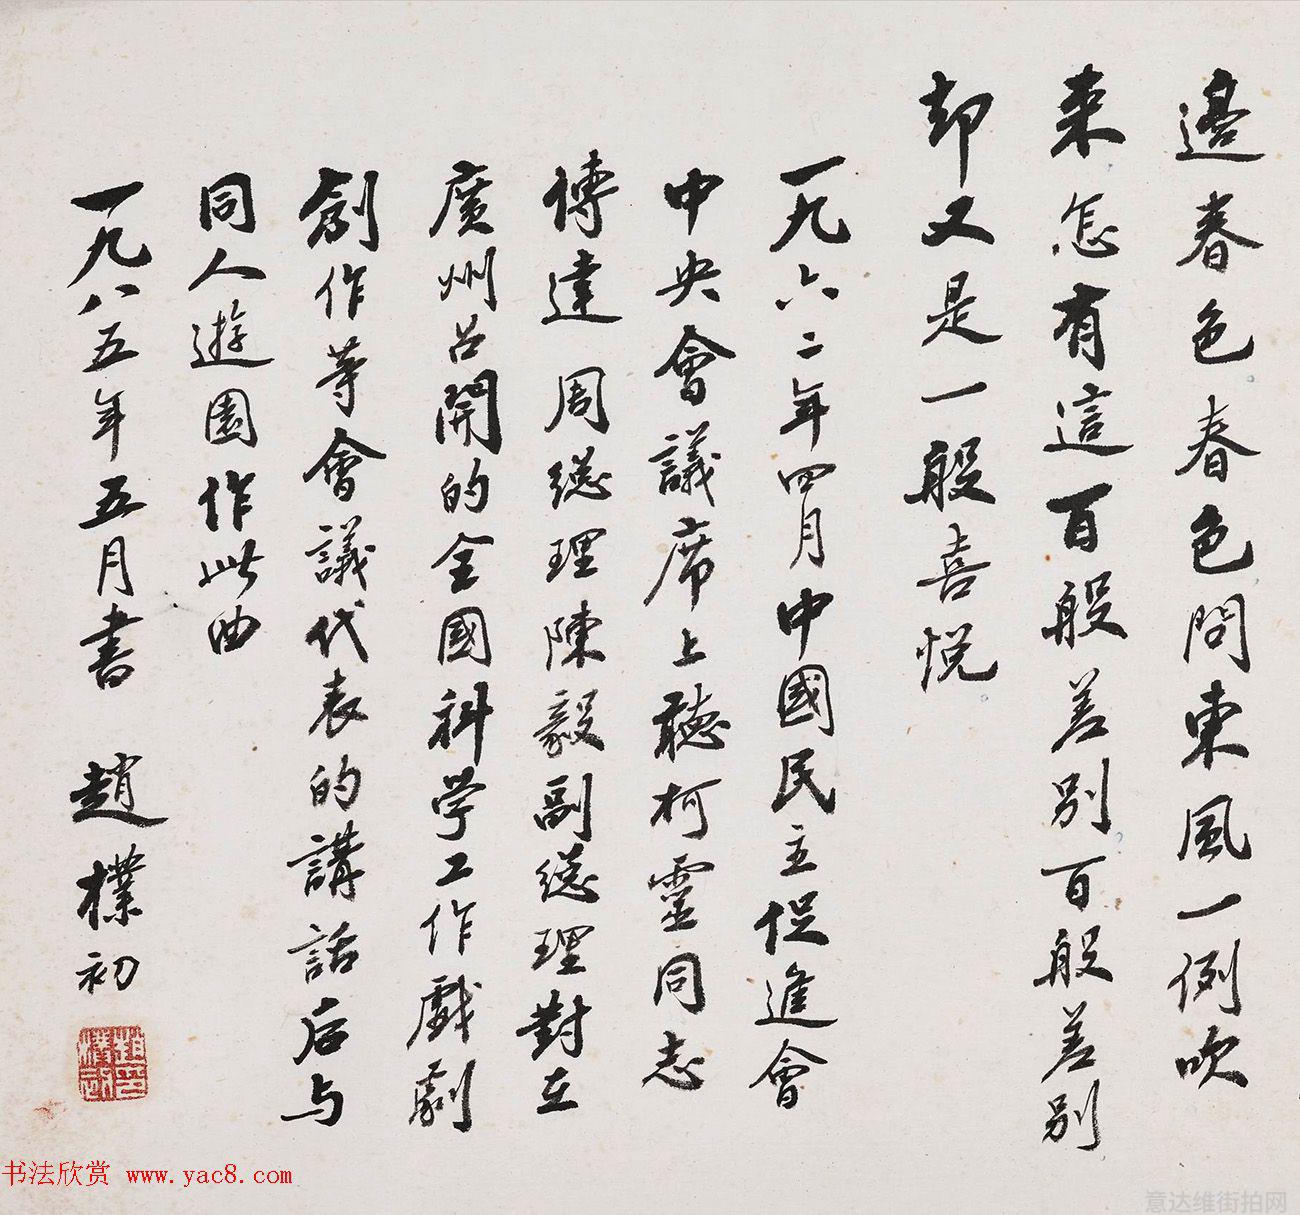 邊春色春色問東風一例吹
來怎有這百般差別百般差別
却又是一般喜悅
一九六二年四月中國民主促進會
中央會議席上聽柯靈同志
傳達周總理陳毅副總理對在
廣州召開的全國科学工作戲劇
創作等會議代表的講話后与
同人遊園作此曲
一九八五年五月書 趙樸初
趙樸初印
书法欣赏 www.yac8.com
意达维街拍网